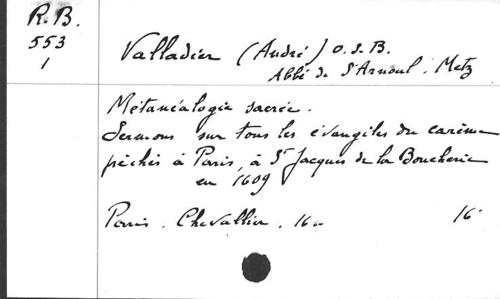 R. B.
553
1
Valladier (André) O. S. B.
Abbé de St Arnoul. Metz
Métanéalogie sacrée.
Sermons sur tous les évangiles du carême
pêchés à Paris, à St Jacques de la Boucherie
en 1609
Paris. Chevallier. 16 16°